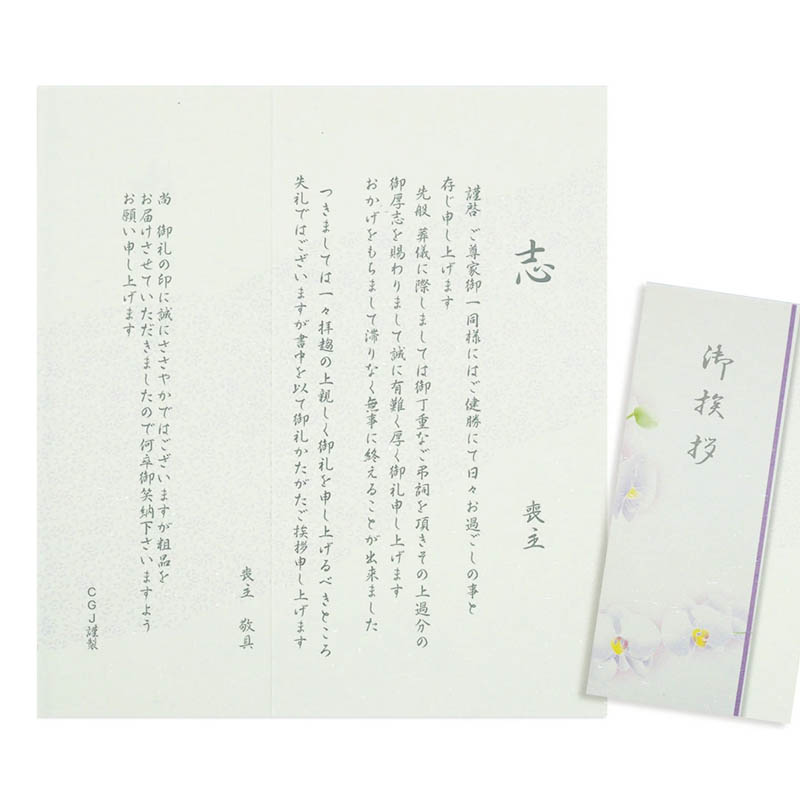 志
喪主
謹啓 ご尊家御一同様にはご健勝にて日々お過ごしの事と
存じ申し上げます
先般 葬儀に際しましては御丁重なご弔詞を頂きその上過分の
御厚志を賜わりまして誠に有難く厚く御礼申し上げます
おかげをもちまして滞りなく無事に終えることが出来ました
つきましては一々拝趨の上親しく御礼を申し上げるべきところ
失礼ではございますが書中を以て御礼かたがたご挨拶申し上げます
喪主 敬具
尚 御礼の印に誠にささやかではございますが粗品を
お届けさせていただきましたので何卒御笑納下さいますよう
お願い申し上げます
CGJ謹製
御挨拶